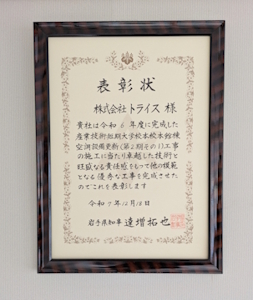 表彰状
株式会社トライス 様
貴社は令和6年度に完成した
産業技術短期大学校本校本館棟
空調設備更新(第2期その1)工事
の施工に当たり卓越した技術と
旺盛なる責任感をもって他の模範
となる優秀な工事を完成させた
のでこれを表彰します
令和7年12月18日
岩手県知事 達増拓也